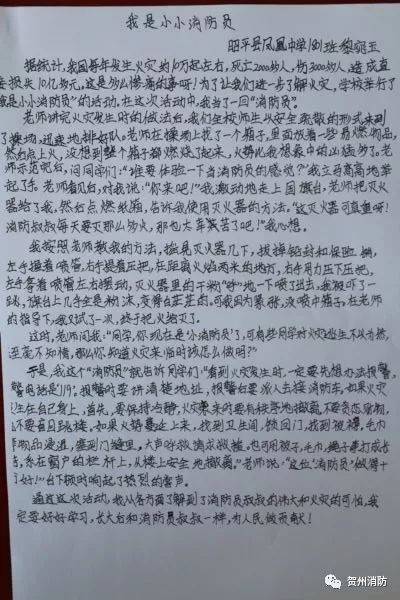 我是小小消防员
昭平县凤凰中学181班黎翊玉
据统计,我国每年发生火灾约10万起左右,死亡2000多人,伤3000多人,造成直
接损失10亿多元。这是多么惨痛的事呀!为了让我们进一步了解火灾,学校举行了
我是小小消防员”的活动。在这次活动中,我当了一回“消防员”。
老师讲完火灾发生时的做法后,我们全校师生以安全疏散的形式来到
了操场,迅速地排好队。老师在操场上找了一个箱子,里面放着一些易燃物品,
然后点上火,没想到整个箱子都燃烧了起来,火势比我想象中的凶猛多了。老
师示范完后,问同学们:“谁要体验一下当消防员的感觉?”我立马高高地举
起了手。老师看见后,对我说:“你来吧!”我激动地走上国旗台,老师把灭火
器给了我,然后点燃纸箱,告诉我使用灭火器的方法。“这灭火器可真重呀!
消防叔叔每天要灭那么多火,那也太辛苦了吧!”我心想。
我按照老师教我的方法,摇晃灭火器几下,拔掉铅封和保险
左手握着喷管,右手提着压把,在距离火焰两米的地方,右手用力压下压把,
左手拿着喷管左右摆动,灭火器里的干粉“呼”地一下喷了出去,我被吓了一
跳,旗台上几乎全是粉末,变得白茫茫的。可我因为紧张,没喷中箱子,在老师
的指导下,我又试了一次,终于把火给灭了。
这时,老师问我:“同学,你现在是‘小消防员’了,可有些同学对火灾逃生不以为然,
至毫不知情,那么你知道火灾来临时该怎么做吗?”
于是,我这个“消防员”就告诉同学们:“看到火灾发生时,一定要先想办法报警,
警电话是‘119’。报警时要讲清楚地址,报警后要派人去接消防车。如果火灾
生在自己身上,首先,要保持冷静,火灾来时要有秩序地撤离,不要贪恋财物,
不要盲目跳楼。如果火势蔓延上来,找到卫生间,锁回门,找到被褥,毛巾
物品浸透,塞到门缝里,大声呼救请求救援。也可用被子,毛巾,绳子来打成长
条,系在窗户的栏杆上,从楼上安全地撤离。”老师说:“这位‘消防员’做得十
了好!”台下顿时响起了热烈的掌声。
通过这次活动,我从各方面了解到了消防员叔叔的伟大和火灾的可怕,我
定要好好学习,长大后和消防员叔叔一样,为人民做贡献!
贺州消防